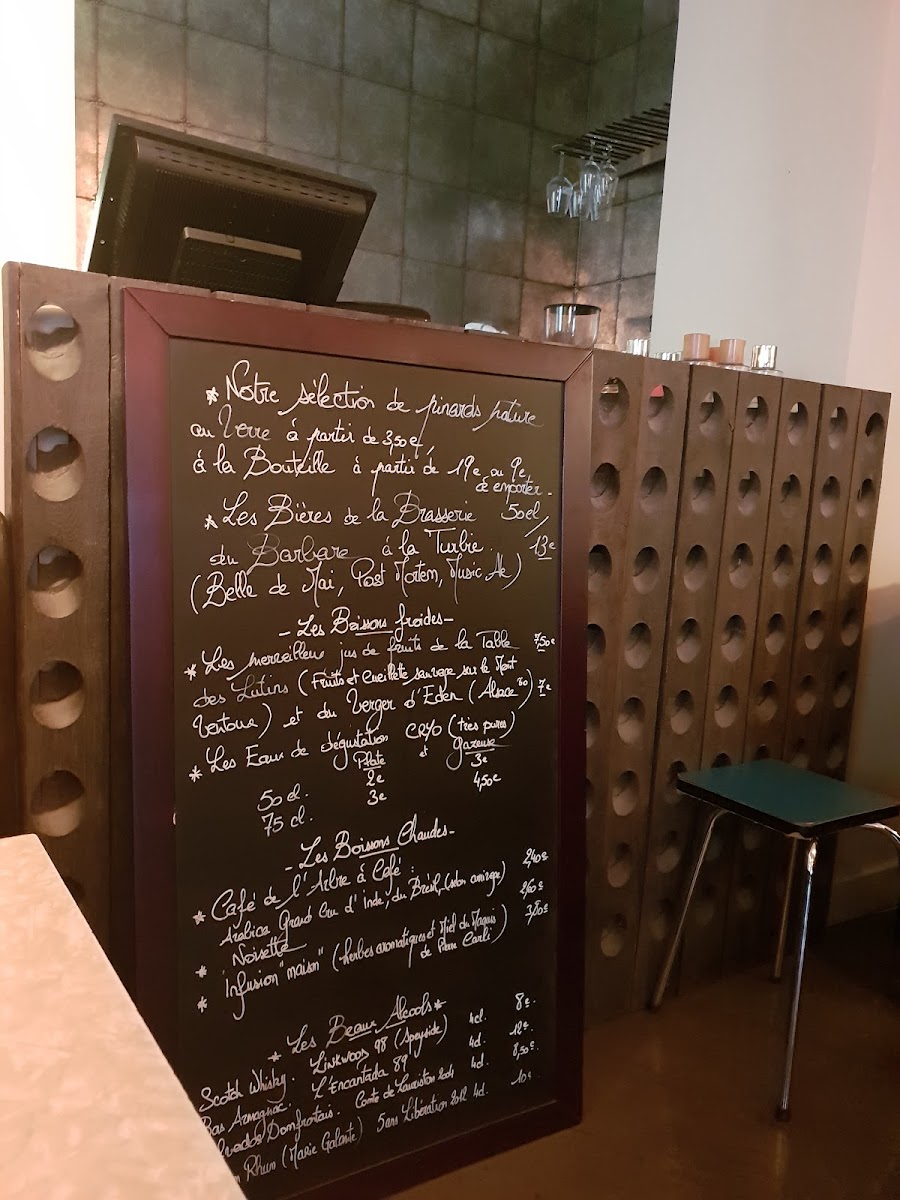 * Notre sélection de pinards nature
au Verre à partir de 3,50€,
à la Bouteille à partir de 19€ ou 9€
à emporter.
* Les Bières de la Brasserie 50cl
du Barbare à la Turbie. 13€
(Belle de Mai, Post Mortem, Music Ale)
- Les Boissons froides -
* Les merveilleux jus de fruits de la Table 7,50€
des Lutins (Fruits et cueillete sauvage sur le Mont
Ventoux) et du Verger d'Eden (Alsace) 7€
* Les Eaux de dégustation CRYO (très pures)
Plate et gazeuse
50 cl. 2€ 3€
75 cl. 3€ 4,50€
- Les Boissons Chaudes -
* Café de l'Arbre à Café :
Arabica Grand Cru d'Inde, du Brésil, (selon arrivage) 2,40€
* Noisette 2,60€
* Infusion "maison" (herbes aromatiques et Miel du Maquis 3,80€
de Pierre Carli)
* Les Beaux Alcools *
Scotch Whisky. Linkwood 98 (Speyside) 4cl. 8€.
Bas Armagnac. L'Encantada 89 4cl. 12€.
Domfrontais. Comte de Lauriston 4cl. 8,50€.
Rhum (Marie Galante) Sans Libération 2012 4cl. 10€